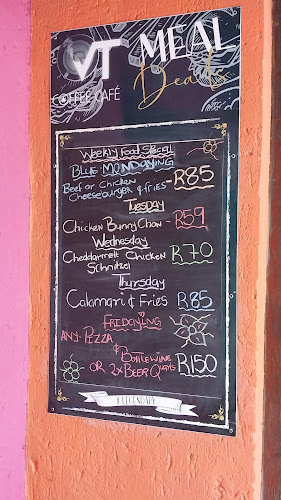 VT MEAL
Deals
COFFEE CAFÉ
Weekly Food Special
BLUE MONDAYING
Beef or Chicken
Cheeseburger & fries - R85
Tuesday
Chicken Bunny Chow - R59
Wednesday
Cheddarmelt Chicken R70
Schnitzel
Thursday
Calamari & Fries R85
FRIDAYING
ANY PIZZA
& Bottle wine
OR 2x BEER Quarts R150
#LEGENDARY